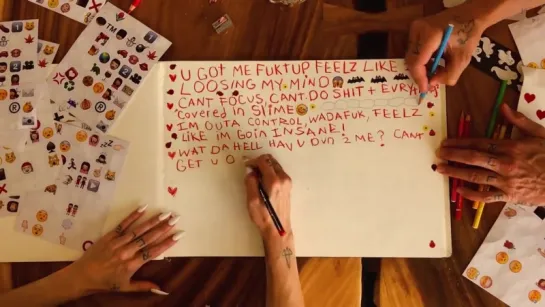 U GOT ME FUKTUP FEELZ LIKE
LOOSING MY MIND
CANT FOCUS, CANT DO SHIT + EVRY
COVERED IN SLIME
IM OUTA CONTROL, WADAFUK, FEELZ
LIKE IM GOIN INSANE!
WAT DA HELL HAV U DUN 2 ME? CANT
GET U O